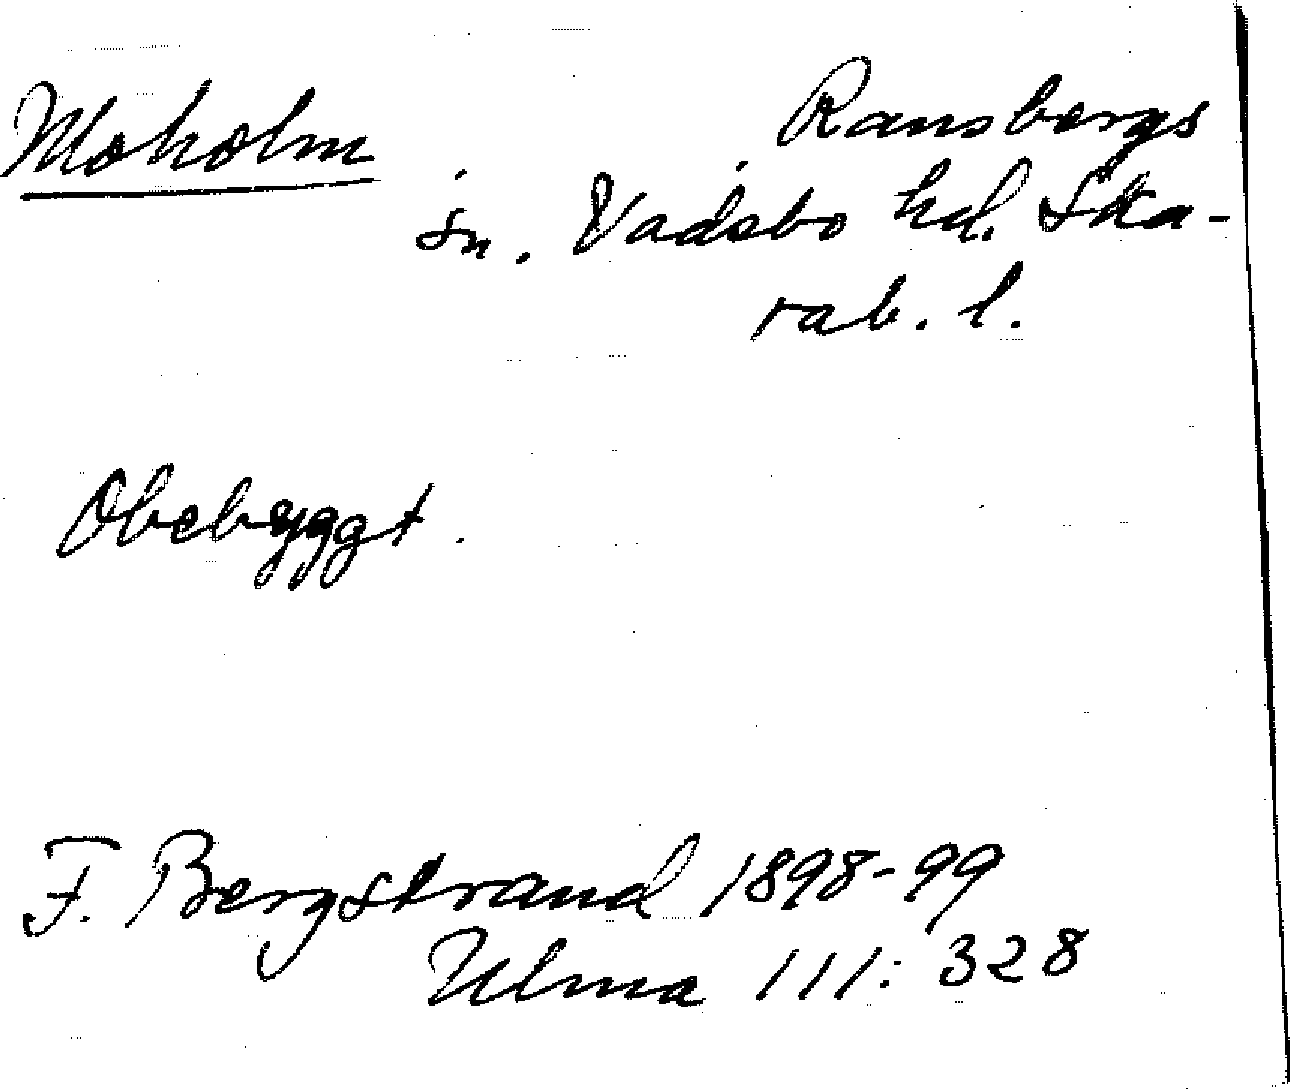 Moholm
Ransbergs
sn. Vadsbo hd. Ska-
rab. l.
Obebyggt.
F. Bergstrand 1898-99
Ulma 111: 328